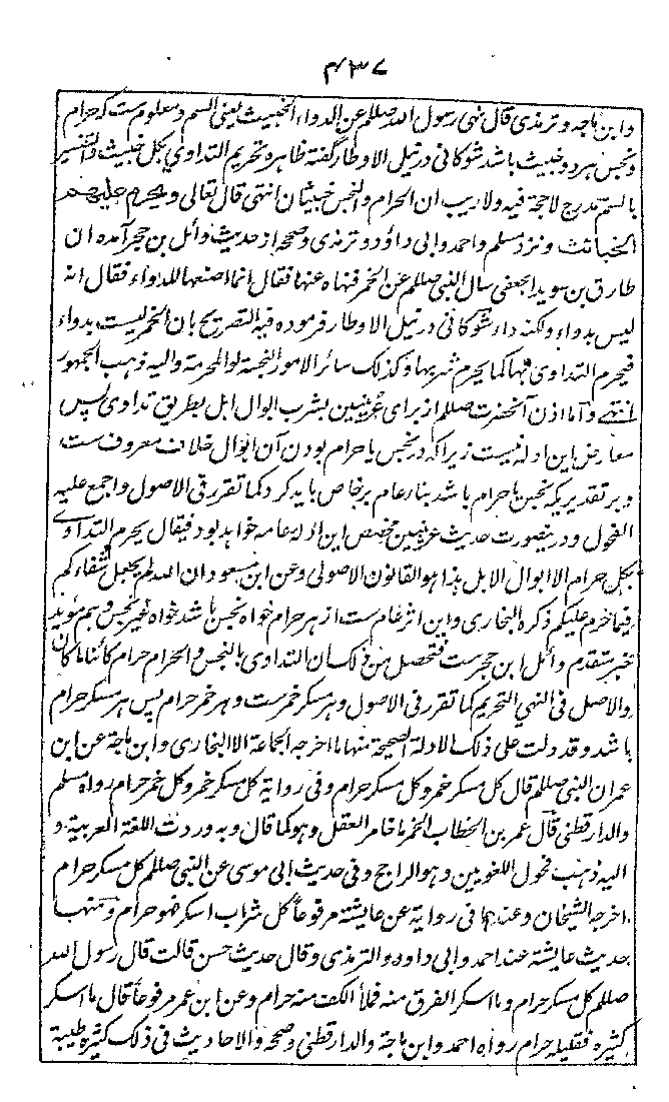 ۴۳۷
وابن ماجه وترمذی قال نهی رسول الله صللم عن الدواء الخبیث یعنی السم ومعلوم ست که حرام
ونجس هر دو خبیث باشد شوکانی در نیل الاوطار گفته ظاهره تحریم التداوی بکل خبیث والتفسیر
بالسم مدرج لا حجة فیه ولا ریب ان الحرام والنجس خبیثان انتهی قال تعالی ویحرم علیهم
الخبائث ونزد مسلم واحمد وابی داؤد وترمذی وصححه از حدیث وائل بن حجر آمده ان
طارق بن سوید الجعفی سال النبی صللم عن الخمر فنهاه عنها فقال انما اصنعها للدواء فقال انه
لیس بدواء ولکنه داء شوکانی در نیل الاوطار فرموده فیه التصریح بان الخمر لیست بدواء
فیحرم التداوی بها کما یحرم شربها وکذلک سائر الامور النجسة او المحرمة والیه ذهب الجمهور
انتهی واما اذن آنحضرت صللم از برای عرنیین بشرب ابوال ابل بطریق تداوی پس
معارض این ادله نیست زیرا که در نجس یا حرام بودن آن ابوال خلاف معروف ست
وبر تقدیریکه نجس یا حرام باشد بناء عام بر خاص باید کرد کما تقرر فی الاصول واجمع علیه
الفحول ودرینصورت حدیث عرنیین مخصص این ادله عامه خواهد بود فیقال یحرم التداوی
بکل حرام الا ابوال الابل هذا هو القانون الاصولی وعن ابن مسعود ان الله لم یجعل شفاءکم
فیما حرم علیکم ذکره البخاری واین اثر عام ست از هر حرام خواه نجس باشد خواه غیر نجس وهم مؤید
خبر متقدم وائل ابن حجر ست فتحصل من ذلک ان التداوی بالنجس والحرام حرام کائنا ما کان
والاصل فی النهی التحریم کما تقرر فی الاصول وهر مسکر خمرست وهر خمر حرام پس هر مسکر حرام
باشد وقد دلت علی ذلک الادلة الصحیحة منها ما اخرجه الجماعة الا البخاری وابن ماجة عن ابن
عمر ان النبی صللم قال کل مسکر خمر وکل مسکر حرام وفی روایة کل مسکر خمر وکل خمر حرام رواه مسلم
والدارقطنی قال عمر بن الخطاب الخمر ما خامر العقل وهو کما قال وبه وردت اللغة العربیة و
الیه ذهب فحول اللغویین وهو الراجح وفی حدیث ابی موسی عن النبی صللم کل مسکر حرام
اخرجه الشیخان وعندهما فی روایة عن عایشة مرفوعاً کل شراب اسکر فهو حرام ومنها
حدیث عایشة عند احمد وابی داود والترمذی وقال حدیث حسن قالت قال رسول الله
صللم کل مسکر حرام وما اسکر الفرق منه فملأ الکف منه حرام وعن ابن عمر مرفوعاً قال ما اسکر
کثیره فقلیله حرام رواه احمد وابن ماجة والدارقطنی وصححه والاحادیث فی ذلک کثیرة طیبة